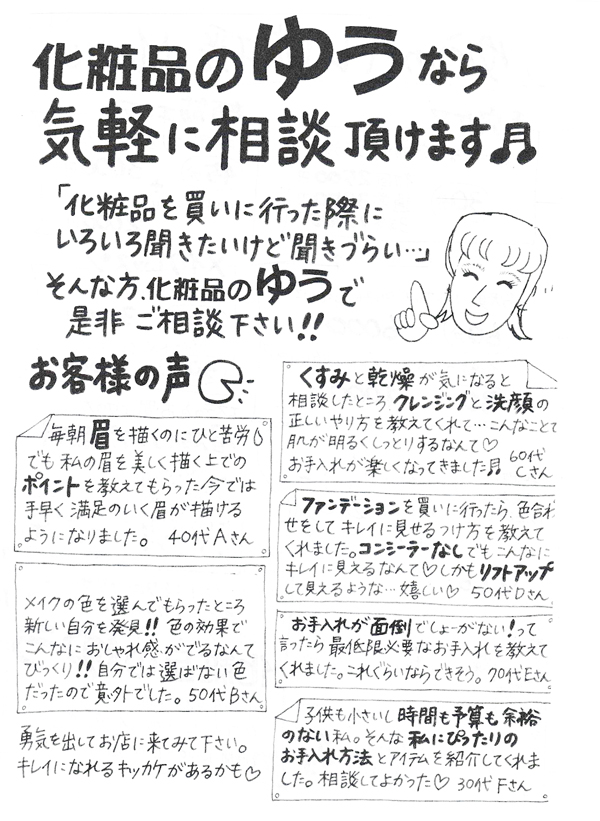 化粧品のゆうなら
気軽に相談頂けます♬
「化粧品を買いに行った際に
いろいろ聞きたいけど聞きづらい…」
そんな方、化粧品のゆうで
是非ご相談下さい!!
お客様の声
毎朝眉を描くのにひと苦労
でも私の眉を美しく描く上での
ポイントを教えてもらった今では
手早く満足のいく眉が描ける
ようになりました。 40代Aさん
メイクの色を選んでもらったところ
新しい自分を発見!! 色の効果で
こんなにおしゃれ感がでるなんて
びっくり!! 自分では選ばない色
だったので意外でした。50代Bさん
勇気を出してお店に来てみて下さい。
キレイになれるキッカケがあるかも♡
くすみと乾燥が気になると
相談したところクレンジングと洗顔の
正しいやり方を教えてくれて…こんなことで
肌が明るくしっとりするなんて♡
お手入れが楽しくなってきました♬ 60代Cさん
ファンデーションを買いに行ったら、色合わ
せをしてキレイに見せるつけ方を教えて
くれました。コンシーラーなしでもこんなに
キレイに見えるなんて♡しかもリフトアップ
して見えるような…嬉しい♡ 50代Dさん
お手入れが面倒でしょーがない!って
言ったら最低限必要なお手入れを教えて
くれました。これぐらいならできそう。70代Eさん
子供も小さいし時間も予算も余裕
のない私。そんな私にぴったりの
お手入れ方法とアイテムを紹介してくれま
した。相談してよかった♡ 30代Fさん